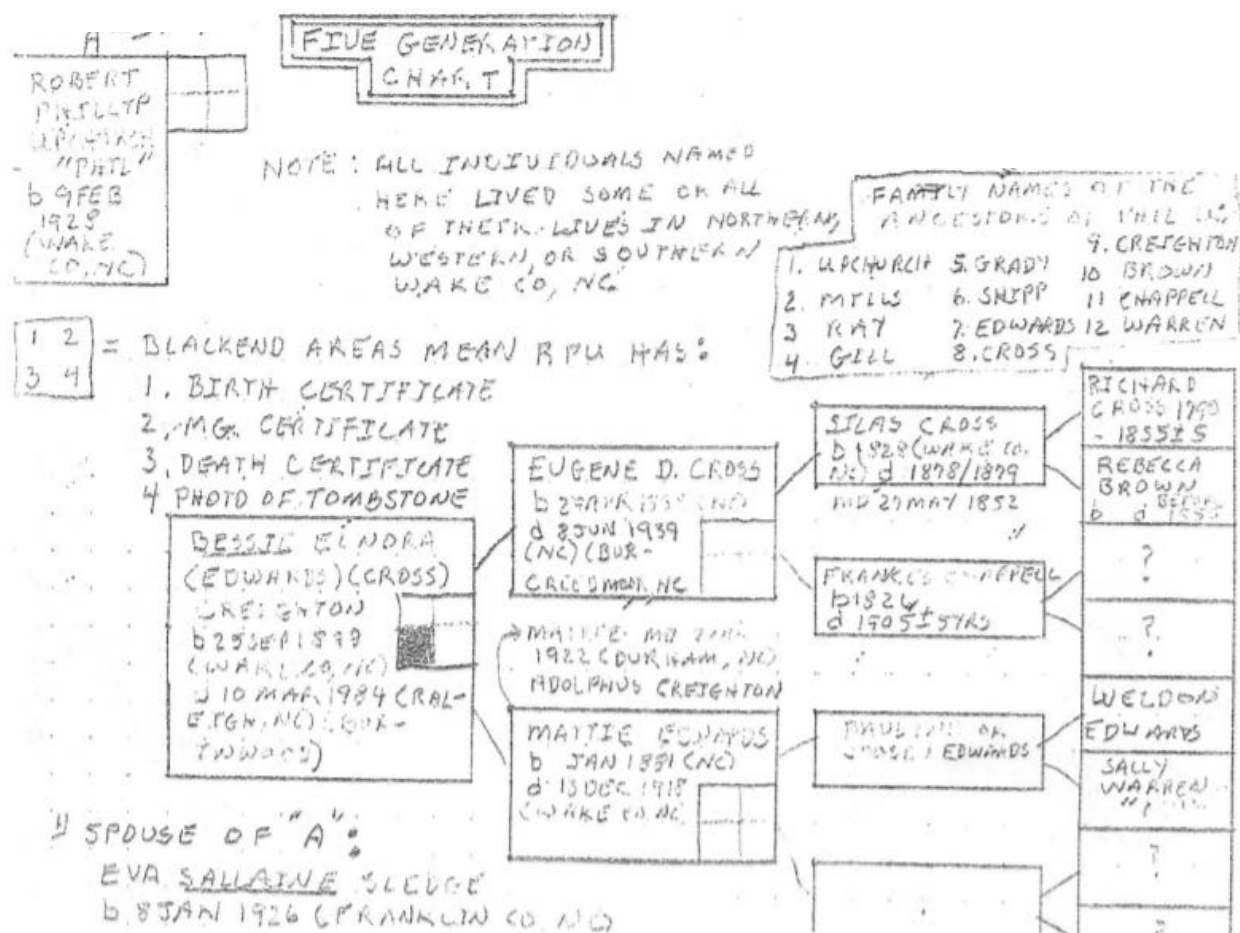 FIVE GENERATION
CHART
A
ROBERT
PHILLIP
UPCHURCH
"PHIL"
b 9 FEB
1928
(WAKE
CO, NC)
NOTE: ALL INDIVIDUALS NAMED
HERE LIVED SOME OR ALL
OF THEIR LIVES IN NORTHERN,
WESTERN, OR SOUTHERN
WAKE CO, NC
FAMILY NAMES OF THE
ANCESTORS OF PHIL
1. UPCHURCH 5. GRADY 9. CREIGHTON
2. MILLS 6. SHIPP 10 BROWN
3 RAY 7. EDWARDS 11 CHAPPELL
4 GILL 8. CROSS 12 WARREN
1 2
3 4
= BLACKEND AREAS MEAN RPU HAS:
1. BIRTH CERTIFICATE
2. MG. CERTIFICATE
3. DEATH CERTIFICATE
4 PHOTO OF TOMBSTONE
BESSIE ELNORA
(EDWARDS)(CROSS)
CREIGHTON
(WAKE CO, NC)
d 10 MAR 1984 (RAL-
EIGH, NC)
EUGENE D. CROSS
d 8 JUN 1939
(NC) (BUR-
CREEDMOOR, NC
MATTIE MD
1922 (DURHAM, NC)
ADOLPHUS CREIGHTON
MATTIE EDWARDS
b JAN 1881 (NC)
d 13 DEC 1918
(WAKE CO. NC
SILAS CROSS
b 1828 (WAKE CO.
NC) d 1878/1879
MD 27 MAY 1852
FRANCES CHAPPELL
b 1826
d 1905 ± 5YRS
EDWARDS
RICHARD
CROSS 1790
- 1855 ± 5
REBECCA
BROWN
b d BEFORE
?
?
WELDON
EDWARDS
SALLY
WARREN
?
?
SPOUSE OF "A":
EVA SALLAINE SLEDGE
b. 8 JAN 1926 (FRANKLIN CO. NC)